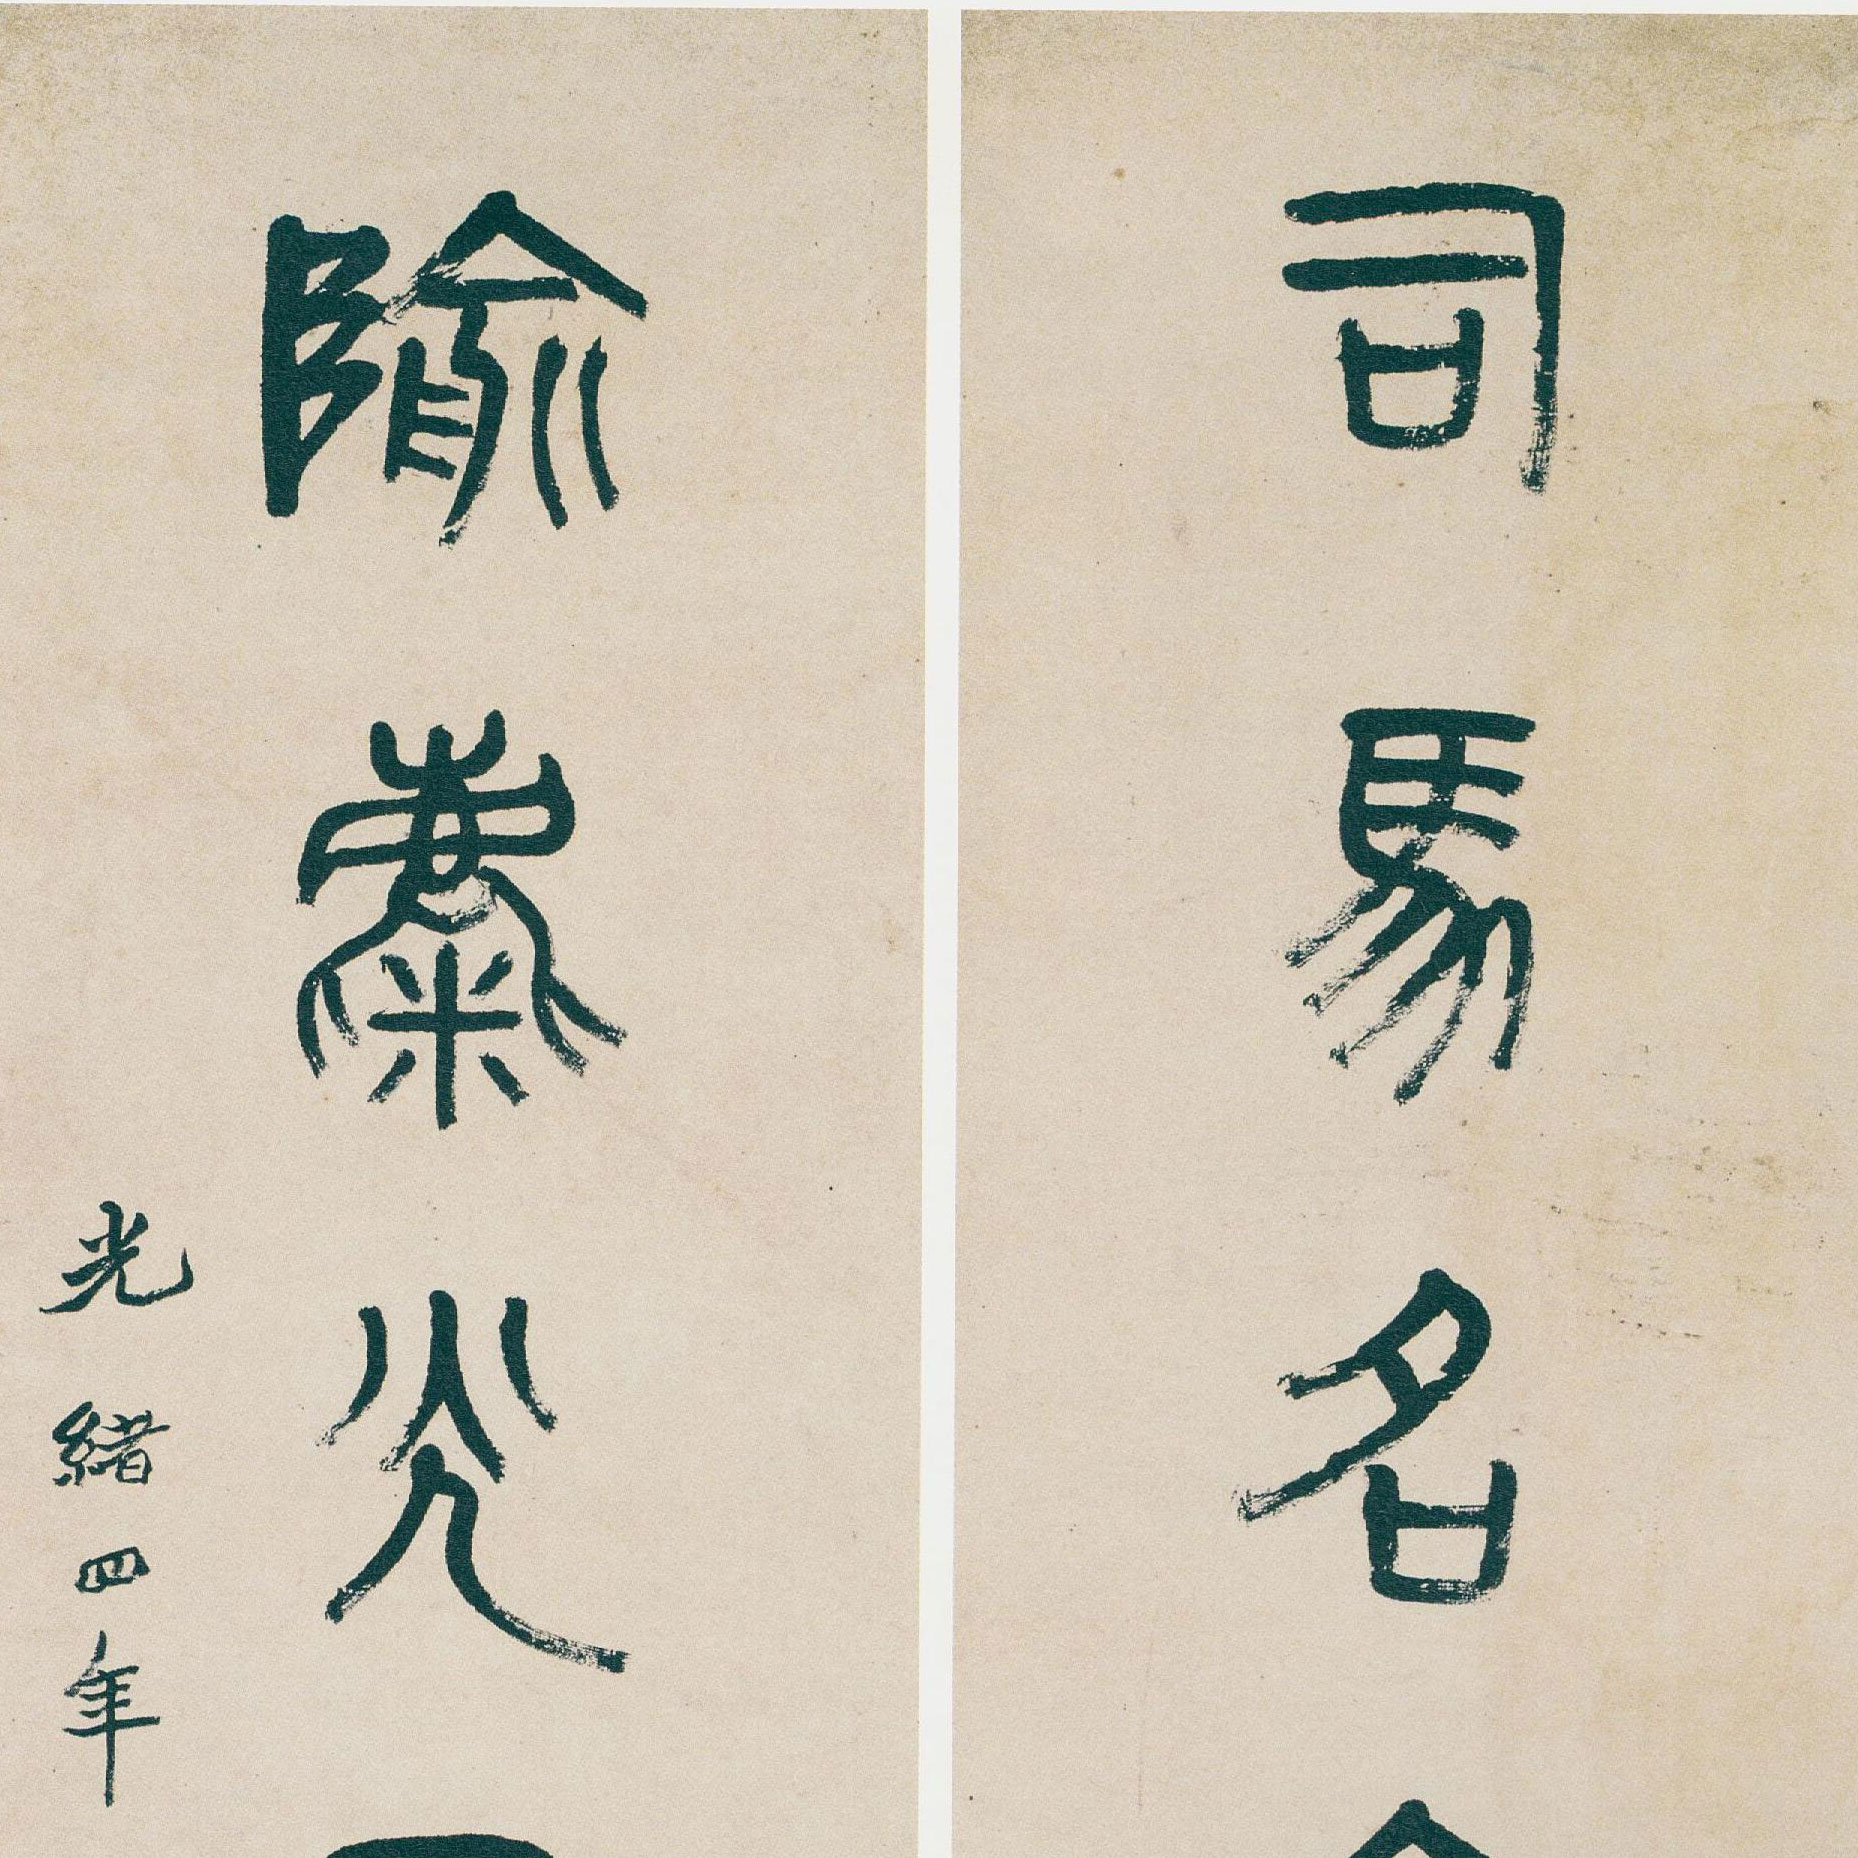 司馬名
隃麋光
光緒四年